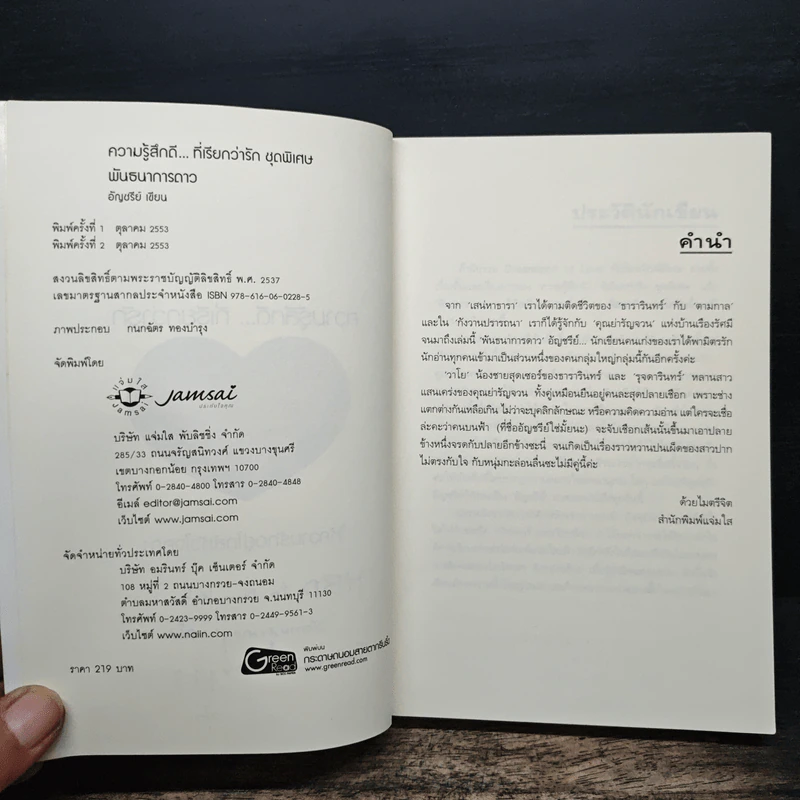 ความรู้สึกดี... ที่เรียกว่ารัก ชุดพิเศษ
พันธนาการดาว
อัญชรีย์ เขียน
พิมพ์ครั้งที่ 1 ตุลาคม 2553
พิมพ์ครั้งที่ 2 ตุลาคม 2553
สงวนลิขสิทธิ์ตามพระราชบัญญัติลิขสิทธิ์ พ.ศ. 2537
เลขมาตรฐานสากลประจำหนังสือ ISBN 978-616-06-0228-5
ภาพประกอบ กนกฉัตร ทองบำรุง
จัดพิมพ์โดย
แจ่มใส
Jamsai
jamsai
บริษัท แจ่มใส พับลิชชิ่ง จำกัด
285/33 ถนนจรัญสนิทวงศ์ แขวงบางขุนศรี
เขตบางกอกน้อย กรุงเทพฯ 10700
โทรศัพท์ 0-2840-4800 โทรสาร 0-2840-4848
อีเมล์ editor@jamsai.com
เว็บไซต์ www.jamsai.com
จัดจำหน่ายทั่วประเทศโดย
บริษัท อมรินทร์ บุ๊ค เซ็นเตอร์ จำกัด
108 หมู่ที่ 2 ถนนบางกรวย-จงถนอม
ตำบลมหาสวัสดิ์ อำเภอบางกรวย จ.นนทบุรี 11130
โทรศัพท์ 0-2423-9999 โทรสาร 0-2449-9561-3
เว็บไซต์ www.naiin.com
ราคา 219 บาท
Green Read
พิมพ์บน
กระดาษถนอมสายตากรีนรี้ด
www.greenread.com
คำนำ
จาก 'เสน่หาธารา' เราได้ตามติดชีวิตของ 'ธารารินทร์' กับ 'ตามกาล'
และใน 'กังวานปรารถนา' เราก็ได้รู้จักกับ 'คุณย่ารัญจวน' แห่งบ้านเรืองรัศมี
จนมาถึงเล่มนี้ 'พันธนาการดาว' อัญชรีย์... นักเขียนคนเก่งของเราได้พามิตรรัก
นักอ่านทุกคนเข้ามาเป็นส่วนหนึ่งของคนกลุ่มใหญ่กลุ่มนี้กันอีกครั้งค่ะ
'วาโย' น้องชายสุดเซอร์ของธารารินทร์ และ 'รุจดารินทร์' หลานสาว
แสนเคร่งของคุณย่ารัญจวน ทั้งคู่เหมือนยืนอยู่คนละสุดปลายเชือก เพราะช่าง
แตกต่างกันเหลือเกิน ไม่ว่าจะบุคลิกลักษณะ หรือความคิดความอ่าน แต่ใครจะเชื่อ
ล่ะคะว่าคนบนฟ้า (ที่ชื่ออัญชรีย์ใช่มั้ยนะ) จะจับเชือกเส้นนั้นขึ้นมาเอาปลาย
ข้างหนึ่งจรดกับปลายอีกข้างซะนี่ จนเกิดเป็นเรื่องราวหวานปนเผ็ดของสาวปาก
ไม่ตรงกับใจ กับหนุ่มกะล่อนลื่นซะไม่มีคู่นี้ค่ะ
ด้วยไมตรีจิต
สำนักพิมพ์แจ่มใส